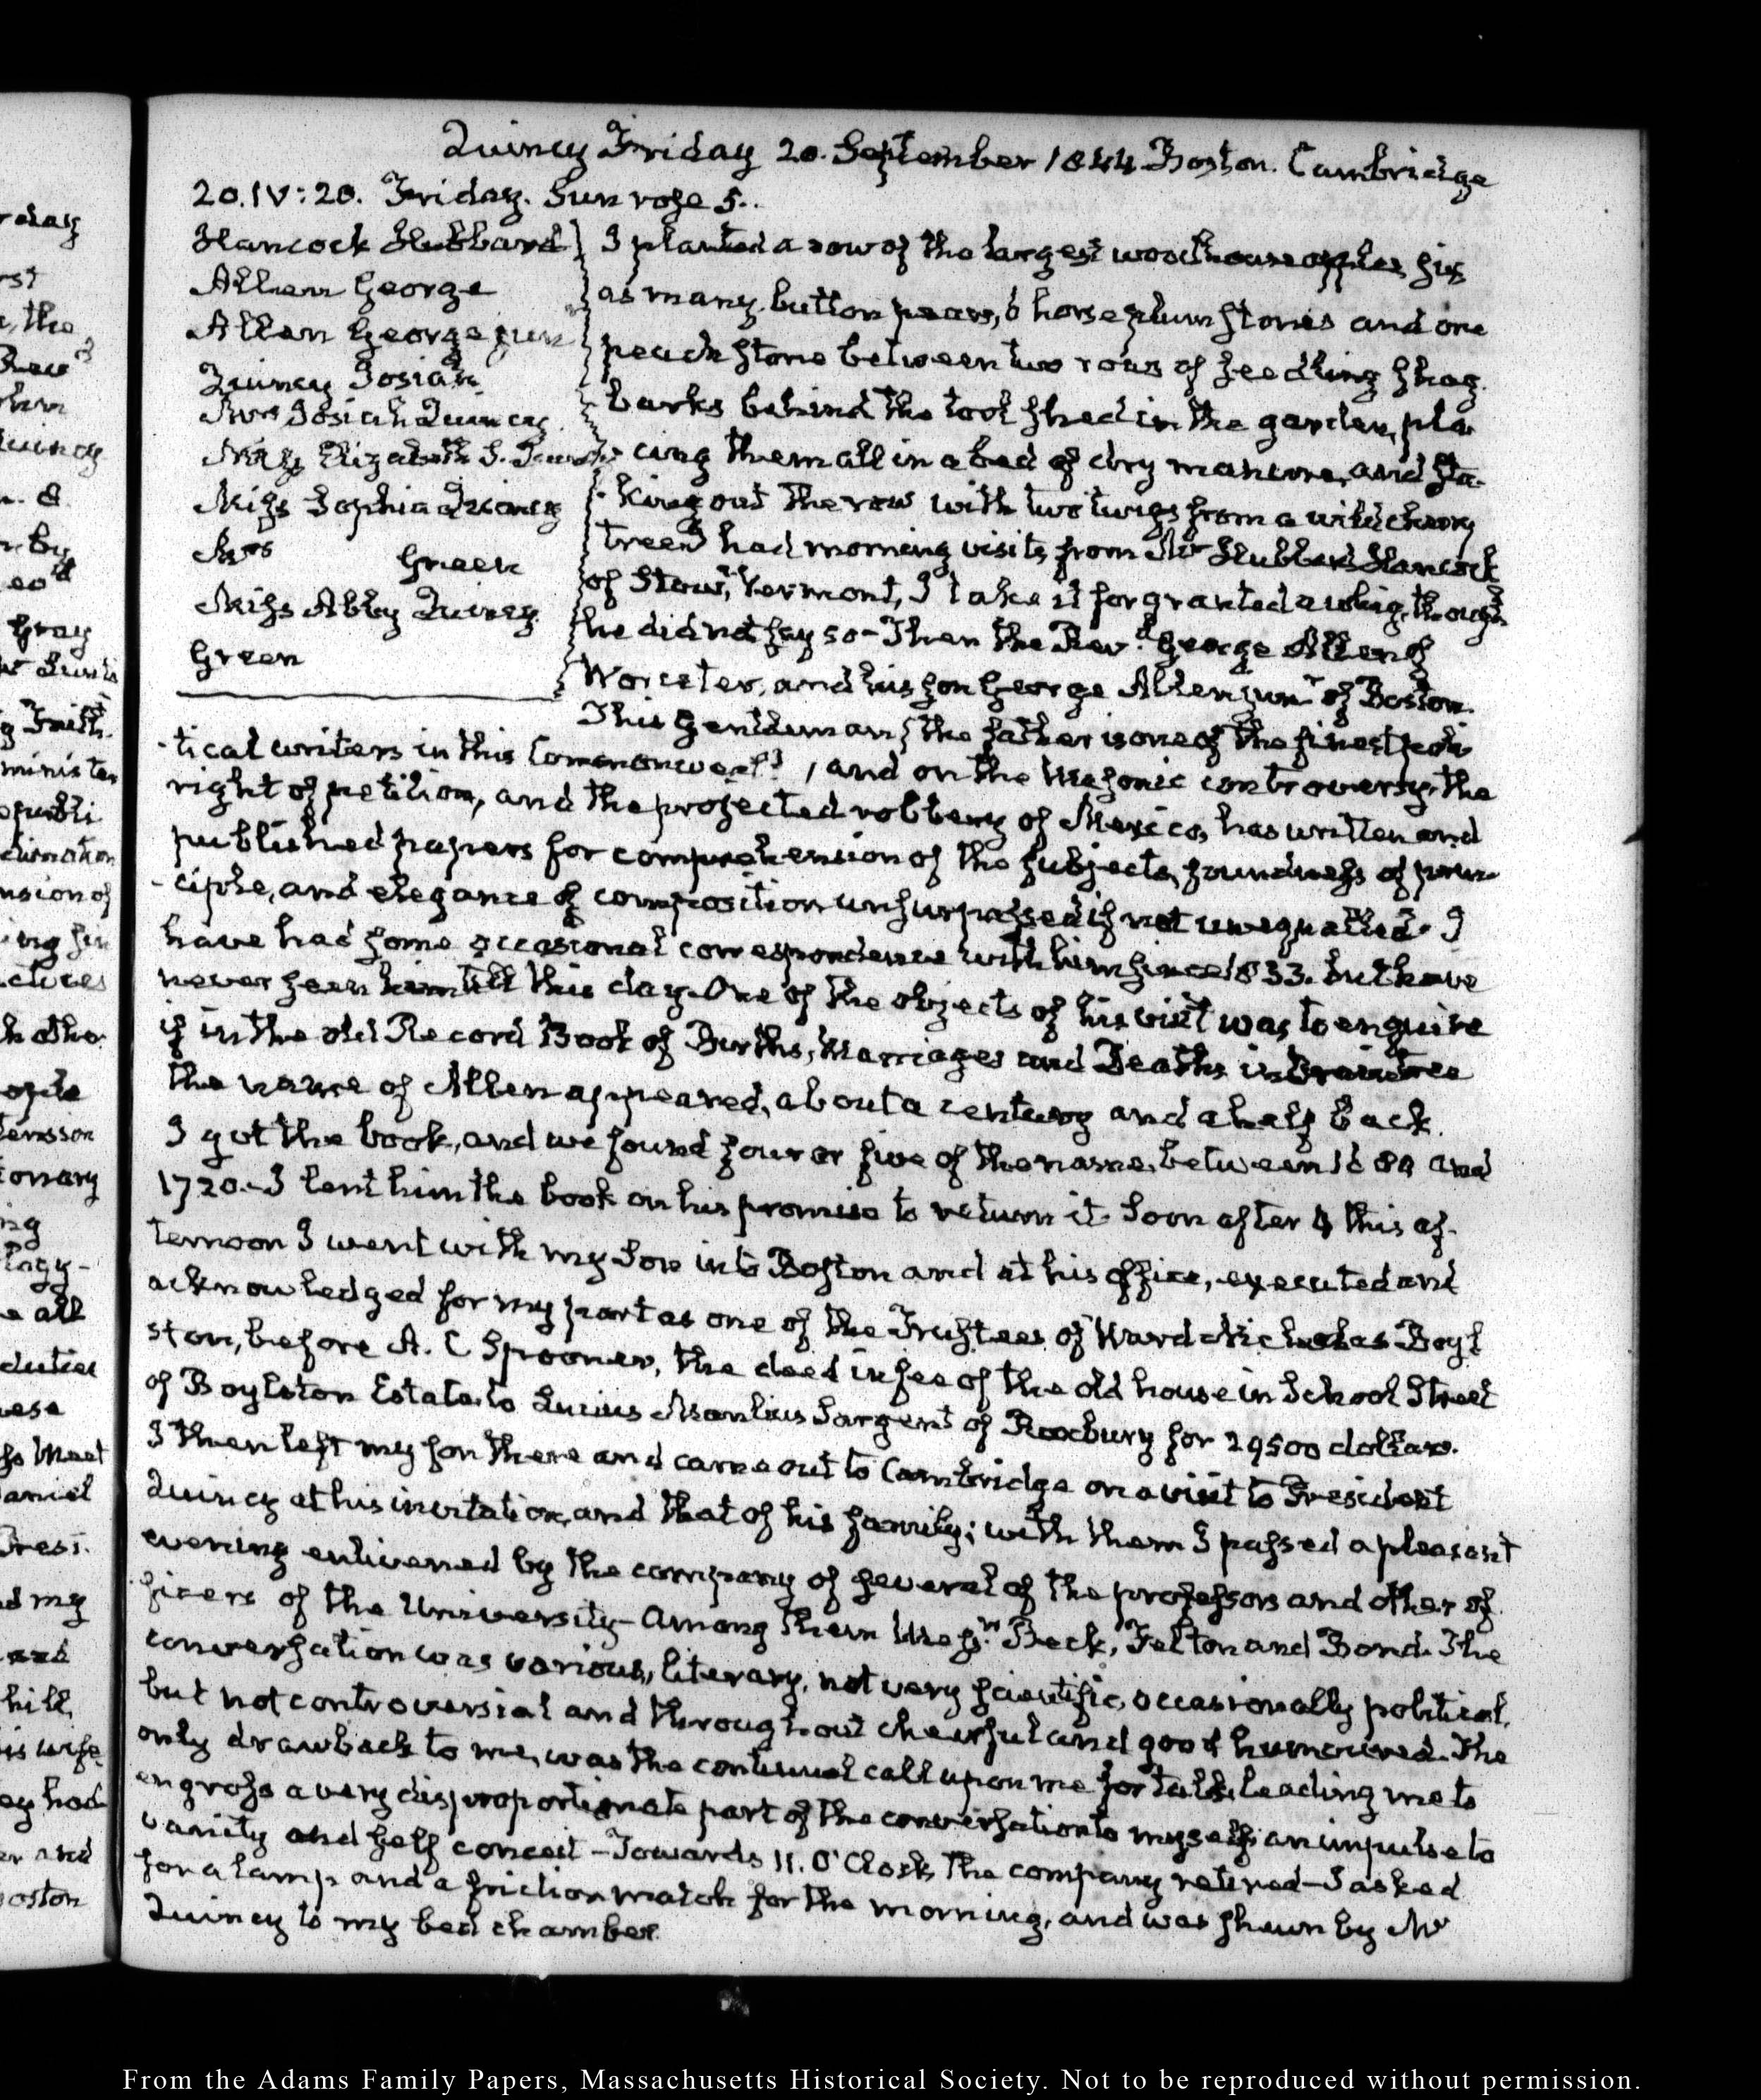 Quincy Friday 20. September 1844 Boston. Cambridge
20. IV: 20. Friday. Sun rose 5..
Hancock Hubbard
Allen George
Allen George junr
Quincy Josiah
Mrs Josiah Quincy
Miss Elizabeth S. Quincy
Miss Sophia Quincy
Mrs Green
Miss Abby Quincy
Green
I planted a row of the largest woodhouse apples six
as many button pears, 6 horse plum stones and one
peach stone between two rows of seedling shag-
barks behind the tool shed in the garden, pla
cing them all in a bed of dry manure, and sta-
king out the row with two twigs from a wild cherry
tree I had morning visits from Mr Hubbard Hancock
of Stow, Vermont, I take it for granted a whig, though
he did not say so – Then the Revd. George Allen of
Worcester, and his son George Allen junr of Boston.
This Gentleman, the father is one of the finest poli
tical writers in this Commonwealth, and on the Masonic controversy, the
right of petition, and the projected robbery of Mexico, has written and
published papers for comprehension of the subjects, soundness of prin-
-ciple, and elegance of composition unsurpassed if not unequalled. I
have had some occasional correspondence with him since 1833. but have
never seen him till this day. One of the objects of his visit was to enquire
if in the old Record Book of Births, Marriages and Deaths in Braintree
the name of Allen appeared, about a century and a half back.
I got the book, and we found four or five of the name, between 1689 and
1720. I lent him the book on his promise to return it. Soon after 4 this af-
ternoon I went with my Son into Boston and at his office, executed and
acknowledged for my part as one of the Trustees of Ward Nicholas Boyl
ston, before A. C Spooner, the deed in fee of the old house in School Street
of Boylston Estate to Lucius Manlius Sargent of Roxbury for 29500 dollars.
I then left my son there and came out to Cambridge on a visit to President
Quincy at his invitation, and that of his family; with them I passed a pleasant
evening enlivened by the company of several of the professors and other of
ficers of the University – Among them Messrs Beck, Felton and Bond. The
conversation was various, literary, not very scientific, occasionally political,
but not controversial and throughout cheerful and good humoured. The
only drawback to me, was the continual call upon me for talk, leading me to
engross a very disproportionate part of the conversation to myself; an impulse to
vanity and self conceit – Towards 11. O'Clock the company retired – I asked
for a lamp and a friction match for the morning, and was shewn by Mr
Quincy to my bed chamber.
From the Adams Family Papers, Massachusetts Historical Society. Not to be reproduced without permission.